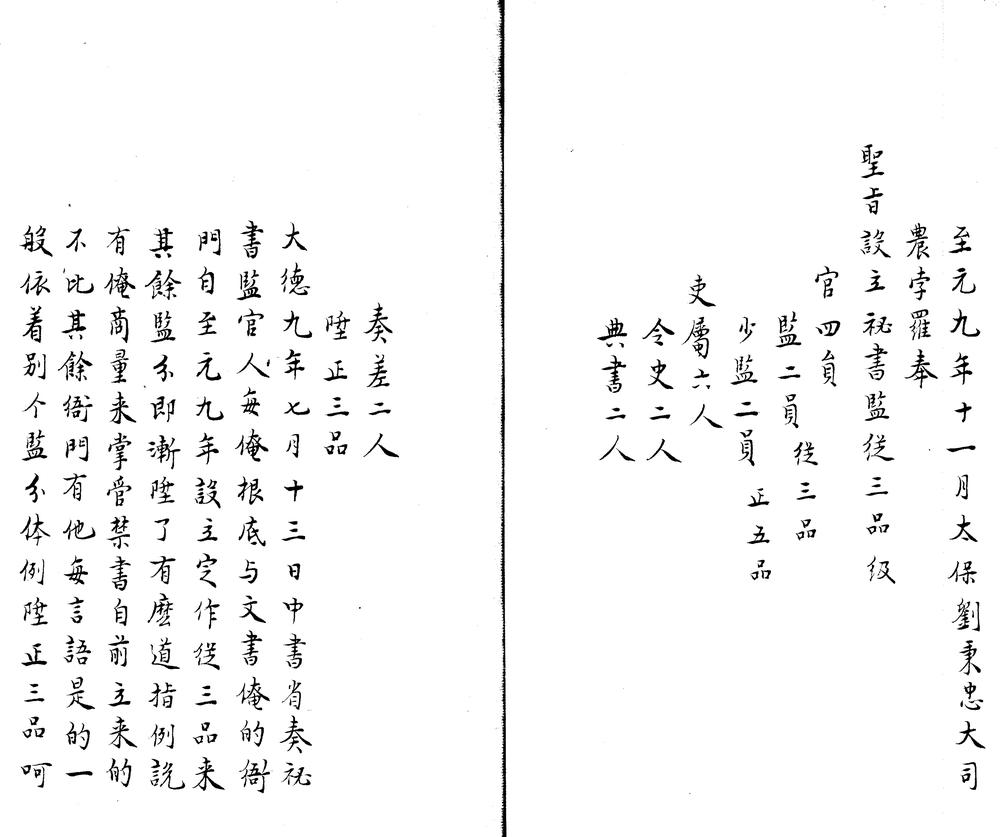 至元九年十一月太保劉秉忠大司
農孛羅奉
聖旨設立祕書監從三品級
官四員
監二員從三品
少監二員正五品
吏屬六人
令史二人
典書二人
奏差二人
陞正三品
大德九年七月十三日中書省奏祕
書監官人每俺根底与文書俺的衙
門自至元九年設立定作從三品来
其餘監分即漸陞了有麽道指例説
有俺商量来掌管禁書自前立来的
不比其餘衙門有他每言語是的一
般依着别个監分体例陞正三品呵